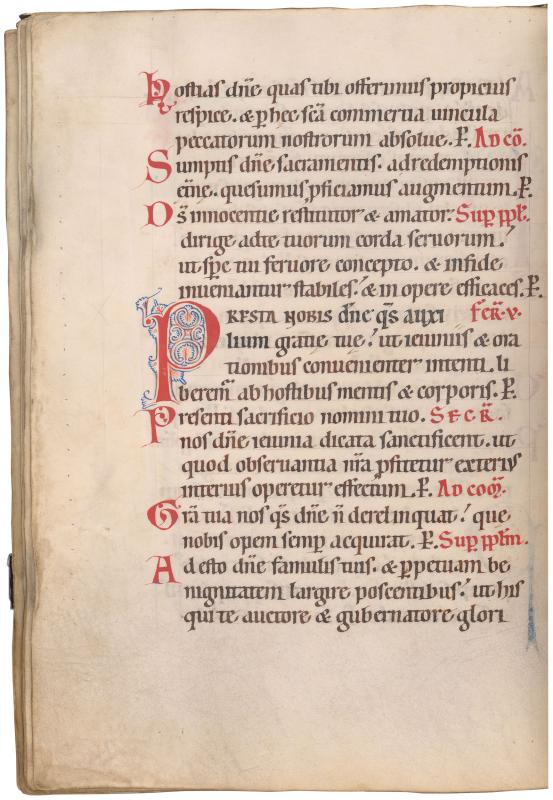 Hostias dn̄e quas tibi offerimus propicius
respice. & p̱ hec sc̄a commertia uincula
peccatorum nostrorum absolue. P̱. AD CŌ.
Sumptis dn̄e sacramentis. ad redemptionis
et̄ne. quesumus p̱ficiamus augmentum. P̱.
Ds̄ innocentie restitutor & amator: Sup̱ pp̱l̄.
dirige ad te tuorum corda seruorum.'
ut sp̄c tui feruore concepto. & in fide
inueniantur stabiles.' & in opere efficaces. P̱.
PRESTA NOBIS dn̄e qs̄ auxi FER̄. V.
lium gratie tue.' ut ieiuniis & ora
tionibus conuenienter intenti. li
berem̄ ab hostibus mentis & corporis. P̱.
Presenti sacrificio nomini tuo. SECR̄.
nos dn̄e ieiunia dicata sanctificent. ut
quod obseruantia nr̄a p̱fitetur exterius
interius operetur effectum. P̱. AD COM̄.
Gr̄a tua nos qs̄ dn̄e n̄ derelinquat.' que
nobis opem semp̱ acquirat. P̱. Sup̱ pp̱lm̄.
Adesto dn̄e famulis tuis. & p̱petuam be
nignitatem largire poscentibus.' ut his
qui te auctore & gubernatore glori